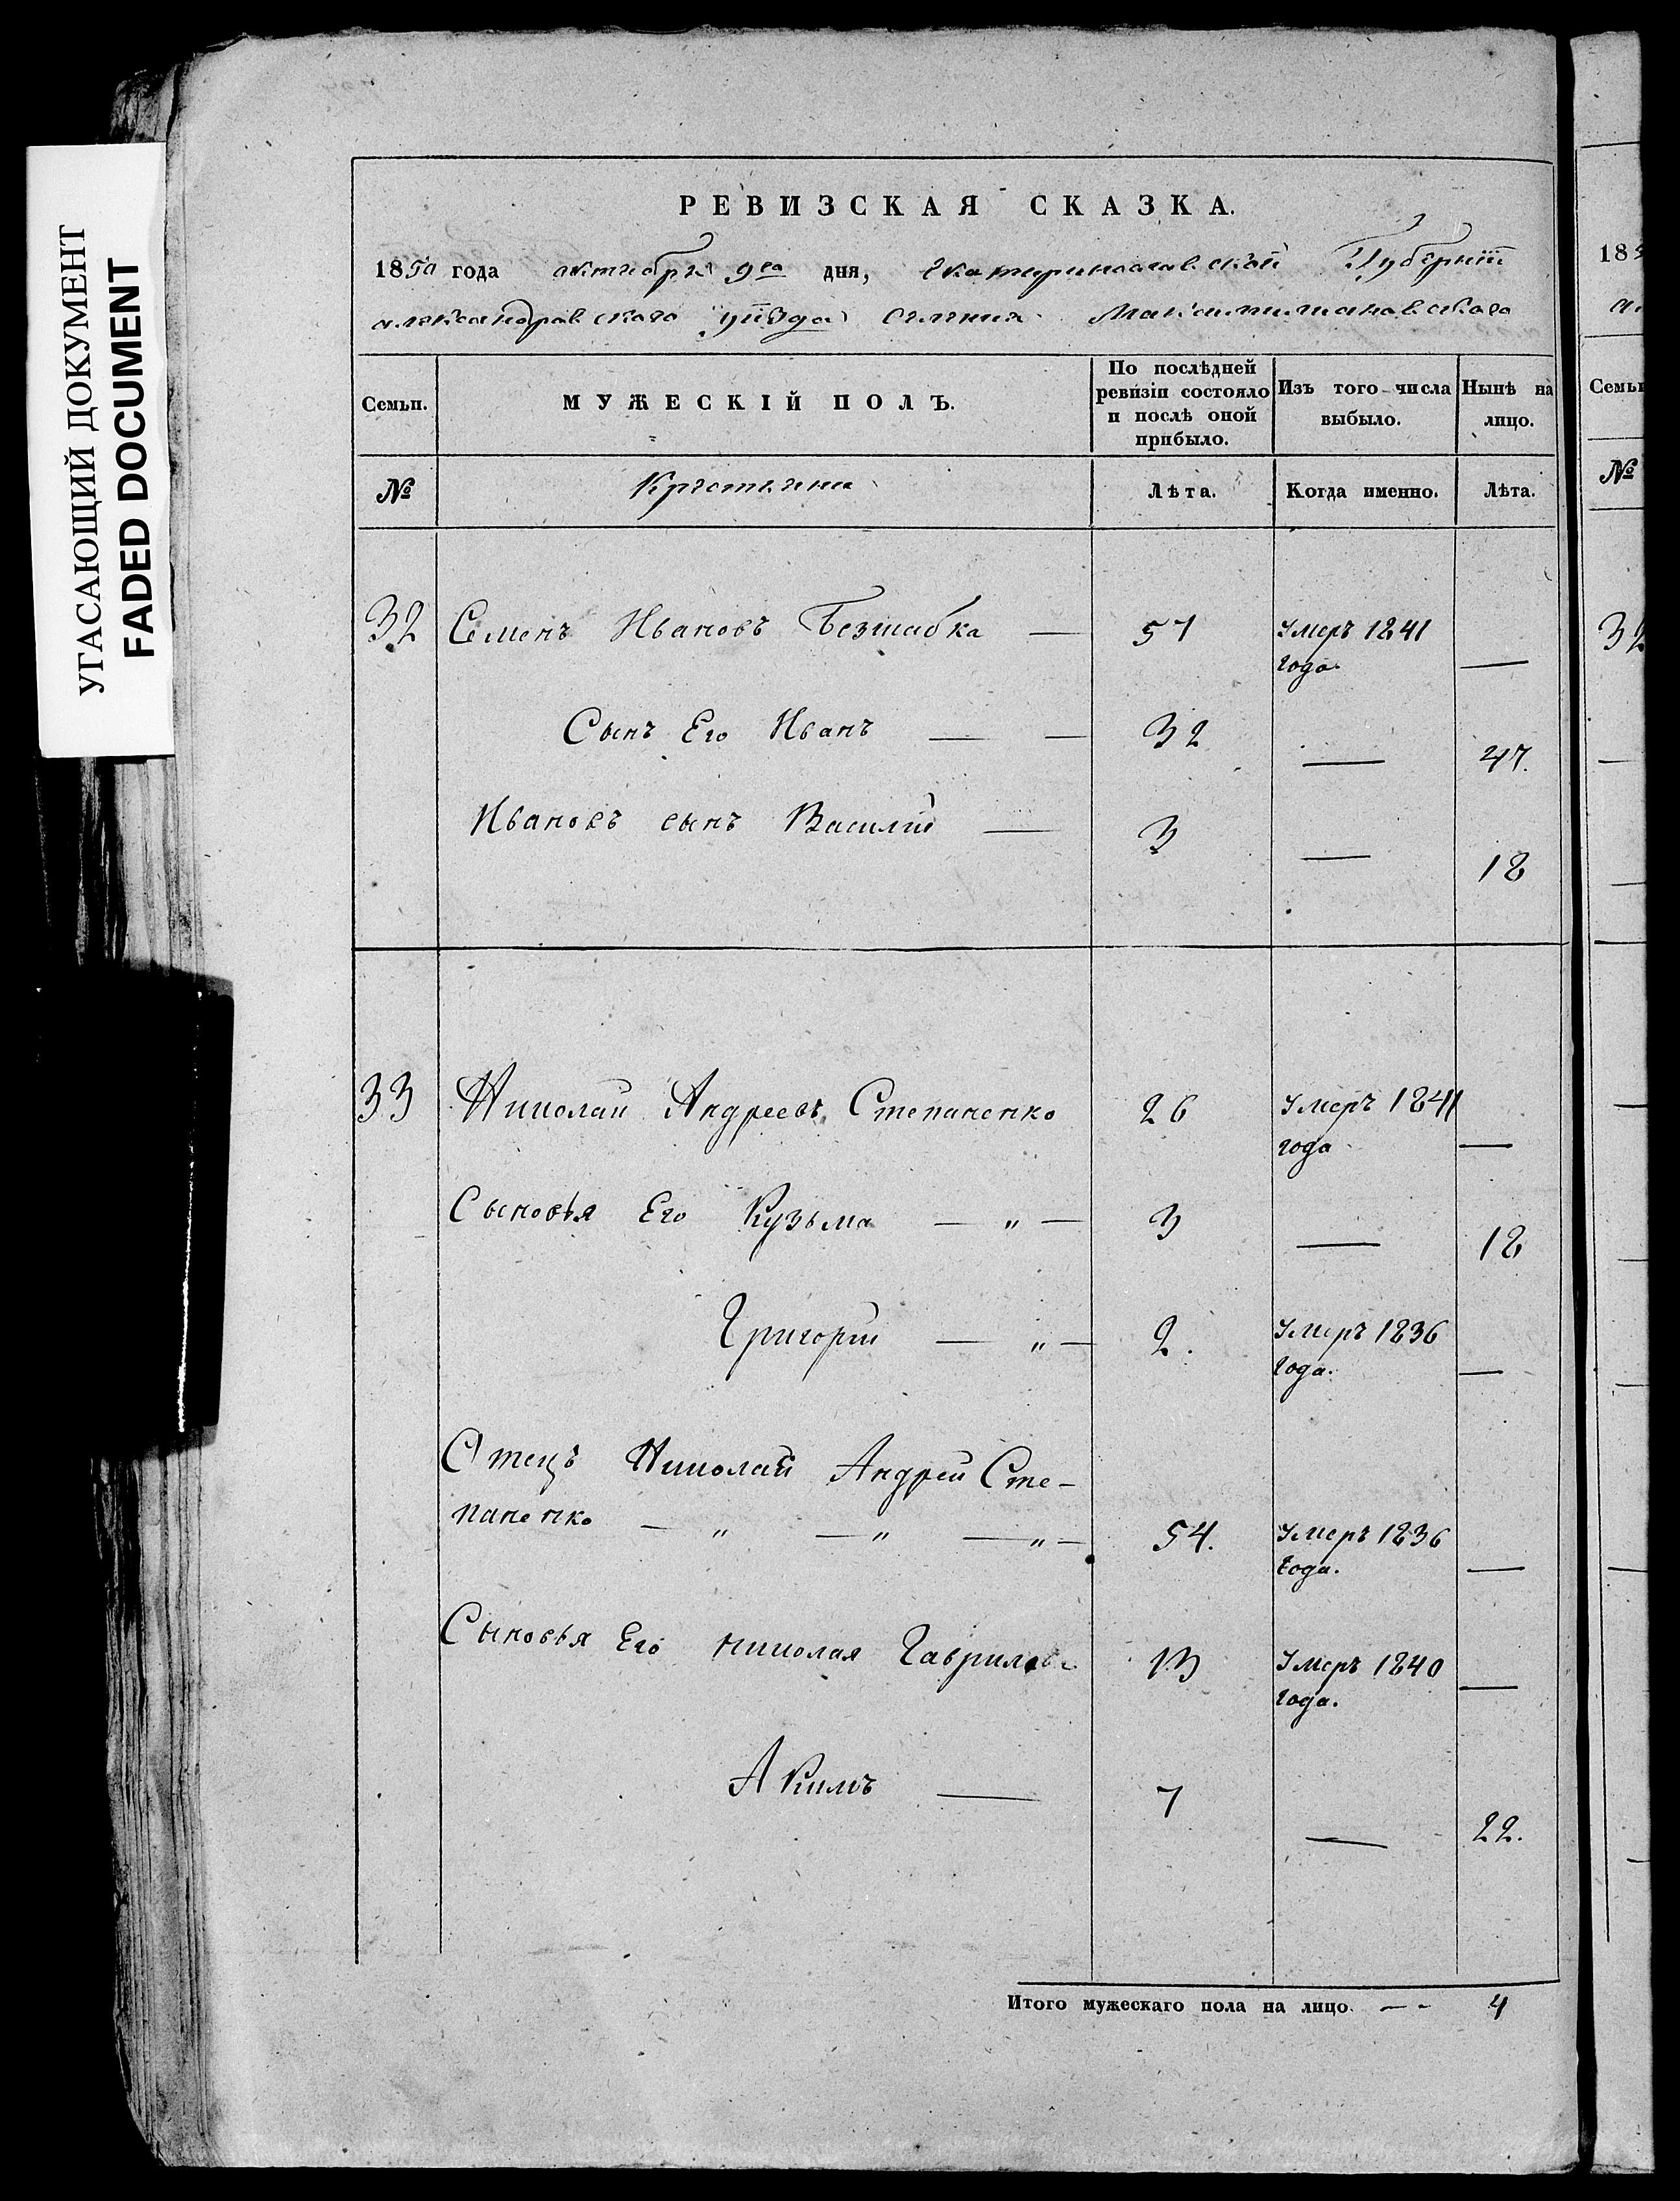 УГАСАЮЩИЙ ДОКУМЕНТ
FADED DOCUMENT
РЕВИЗСКАЯ СКАЗКА.
1850 года октября 9го дня, Екатеринославской Губерніи
александровского уѣзда селения Максимилиановского
Семьи. МУЖЕСКІЙ ПОЛЪ. По послѣдней ревизіи состояло и послѣ оной прибыло. Изъ того числа выбыло. Нынѣ на лицо.
№ Крестьяне Лѣта. Когда именно. Лѣта.
32 Семенъ Ивановъ Безшабка — 57 Умеръ 1841 года. —
Сынъ Его Иванъ — — 32 — 47.
Ивановъ сынъ Василий — 3 — 18
33 Николай Андреевъ Степаненко 26 Умеръ 1841 года —
Сыновья Его Кузьма — „ — 3 — 18
Григорий — „ — 2. Умеръ 1836 года. —
Отецъ Николай Андрей Сте-
паненко — „ — „ — „ — 54. Умеръ 1836 года. —
Сыновья Его николая 13 Умеръ 1840 года. —
Акимъ — 7 — 22.
Итого мужескаго пола на лицо. — - 4
18
Семьи
№
32